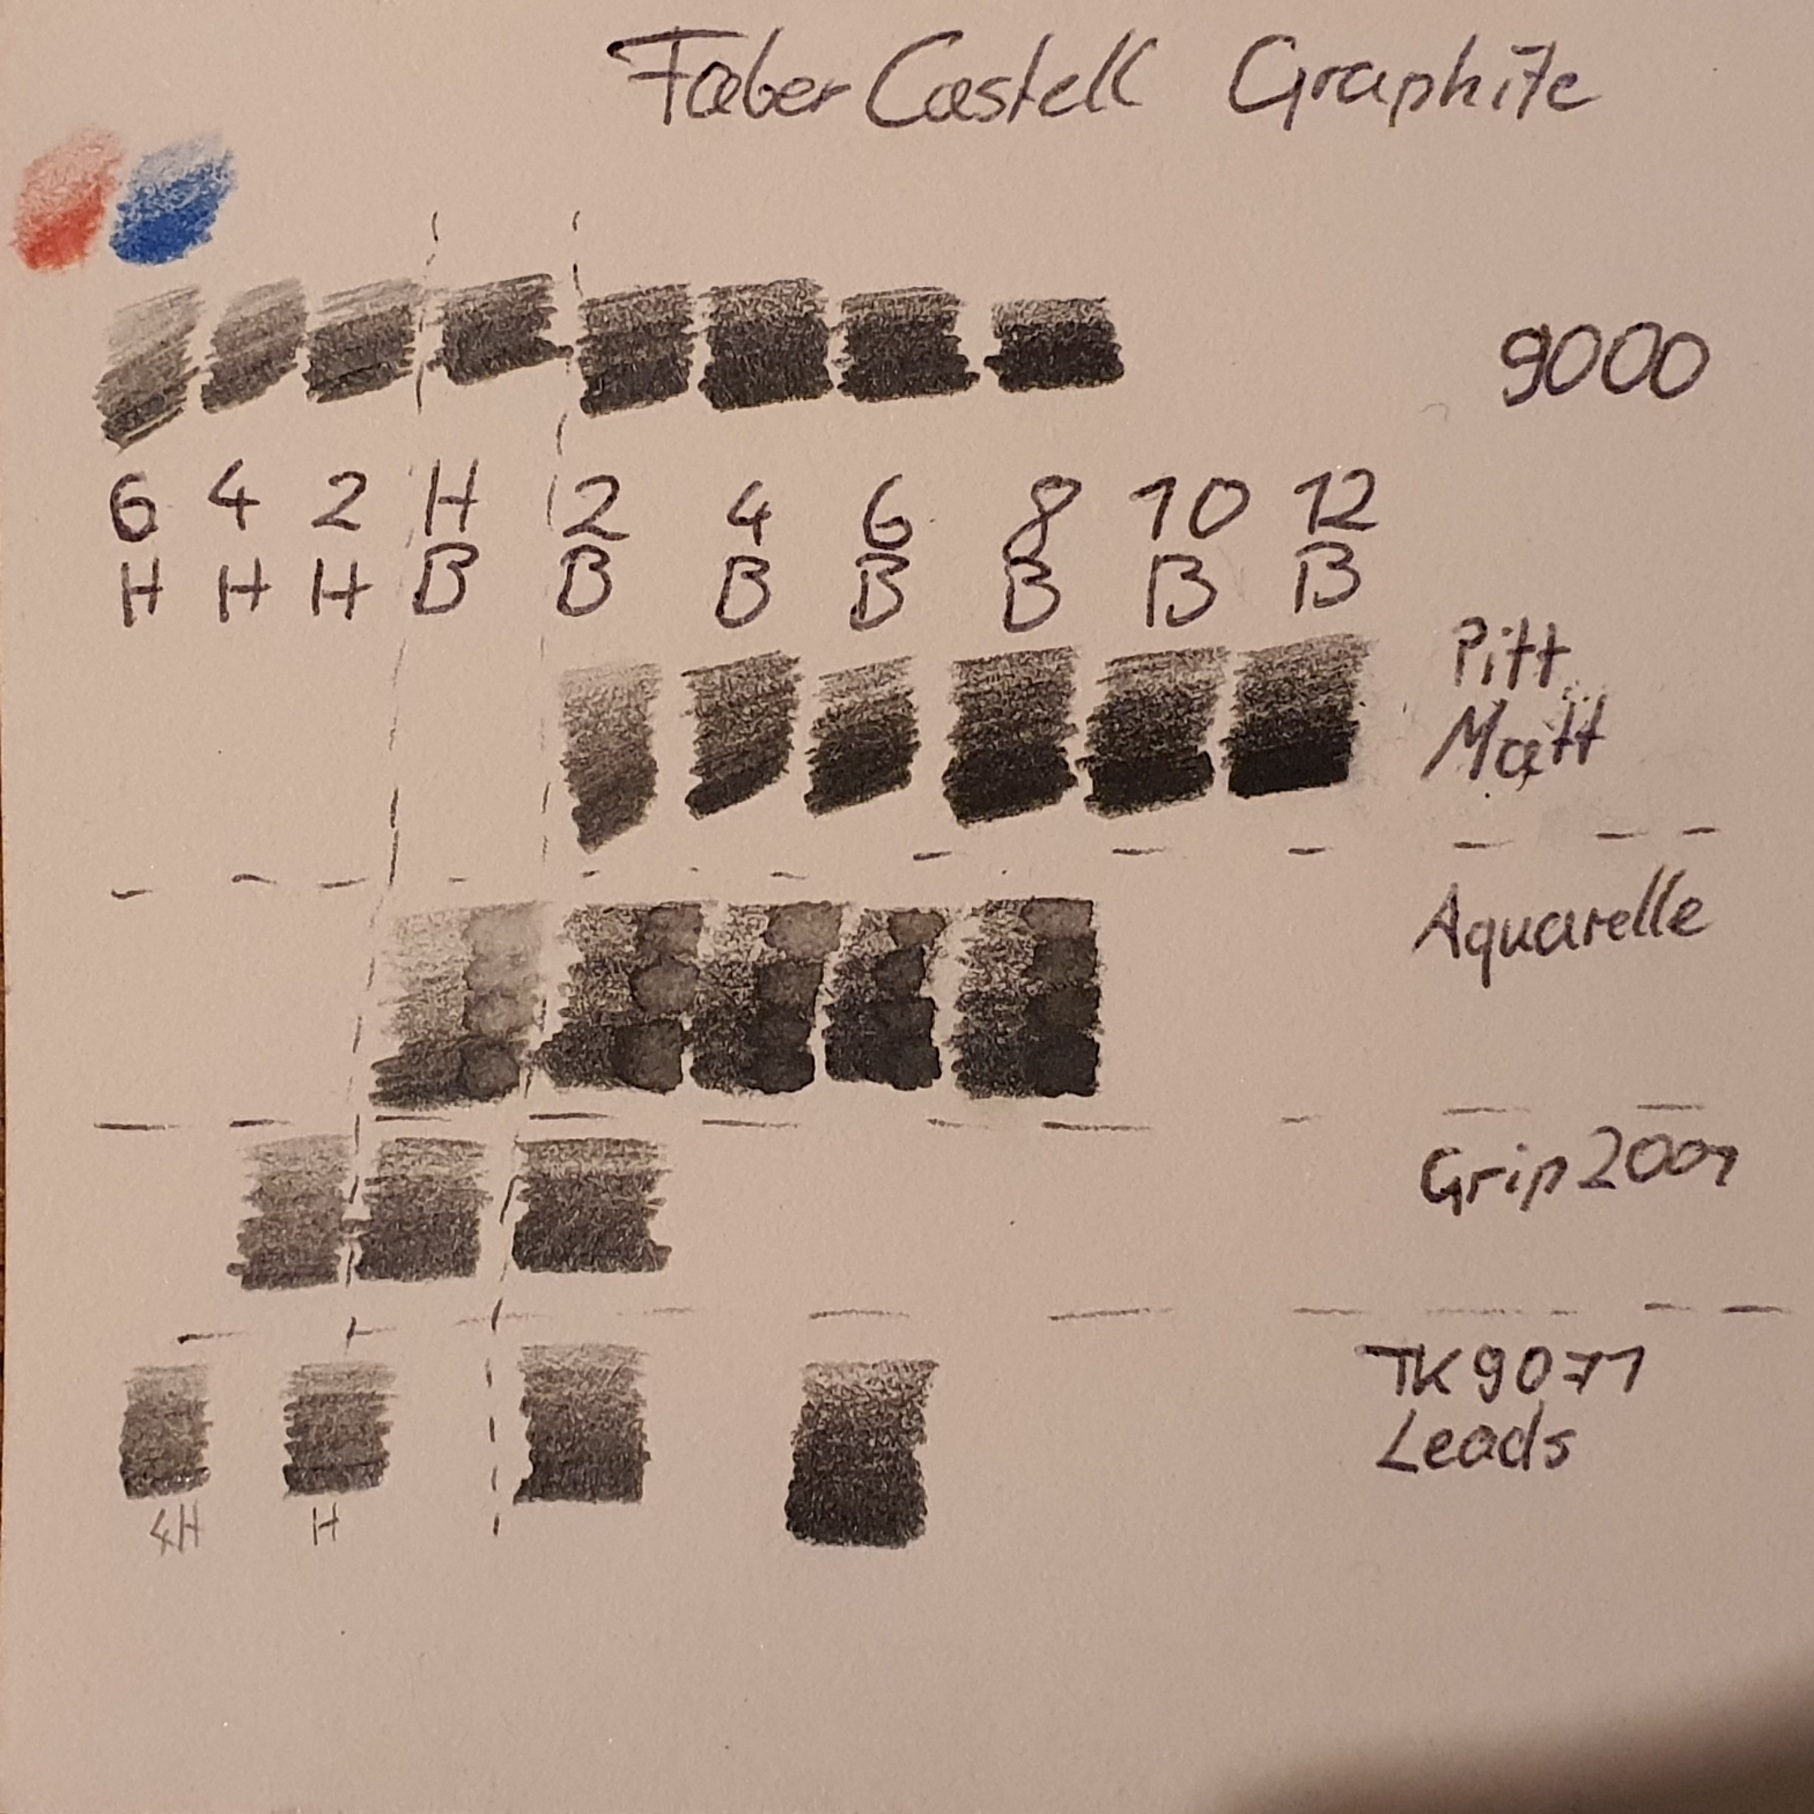 Faber Castell Graphite
9000
6 4 2 H 2 4 6 8 10 12
H H H B B B B B B B
Pitt
Matt
Aquarelle
Grip 2001
TK 9071
Leads
4H H